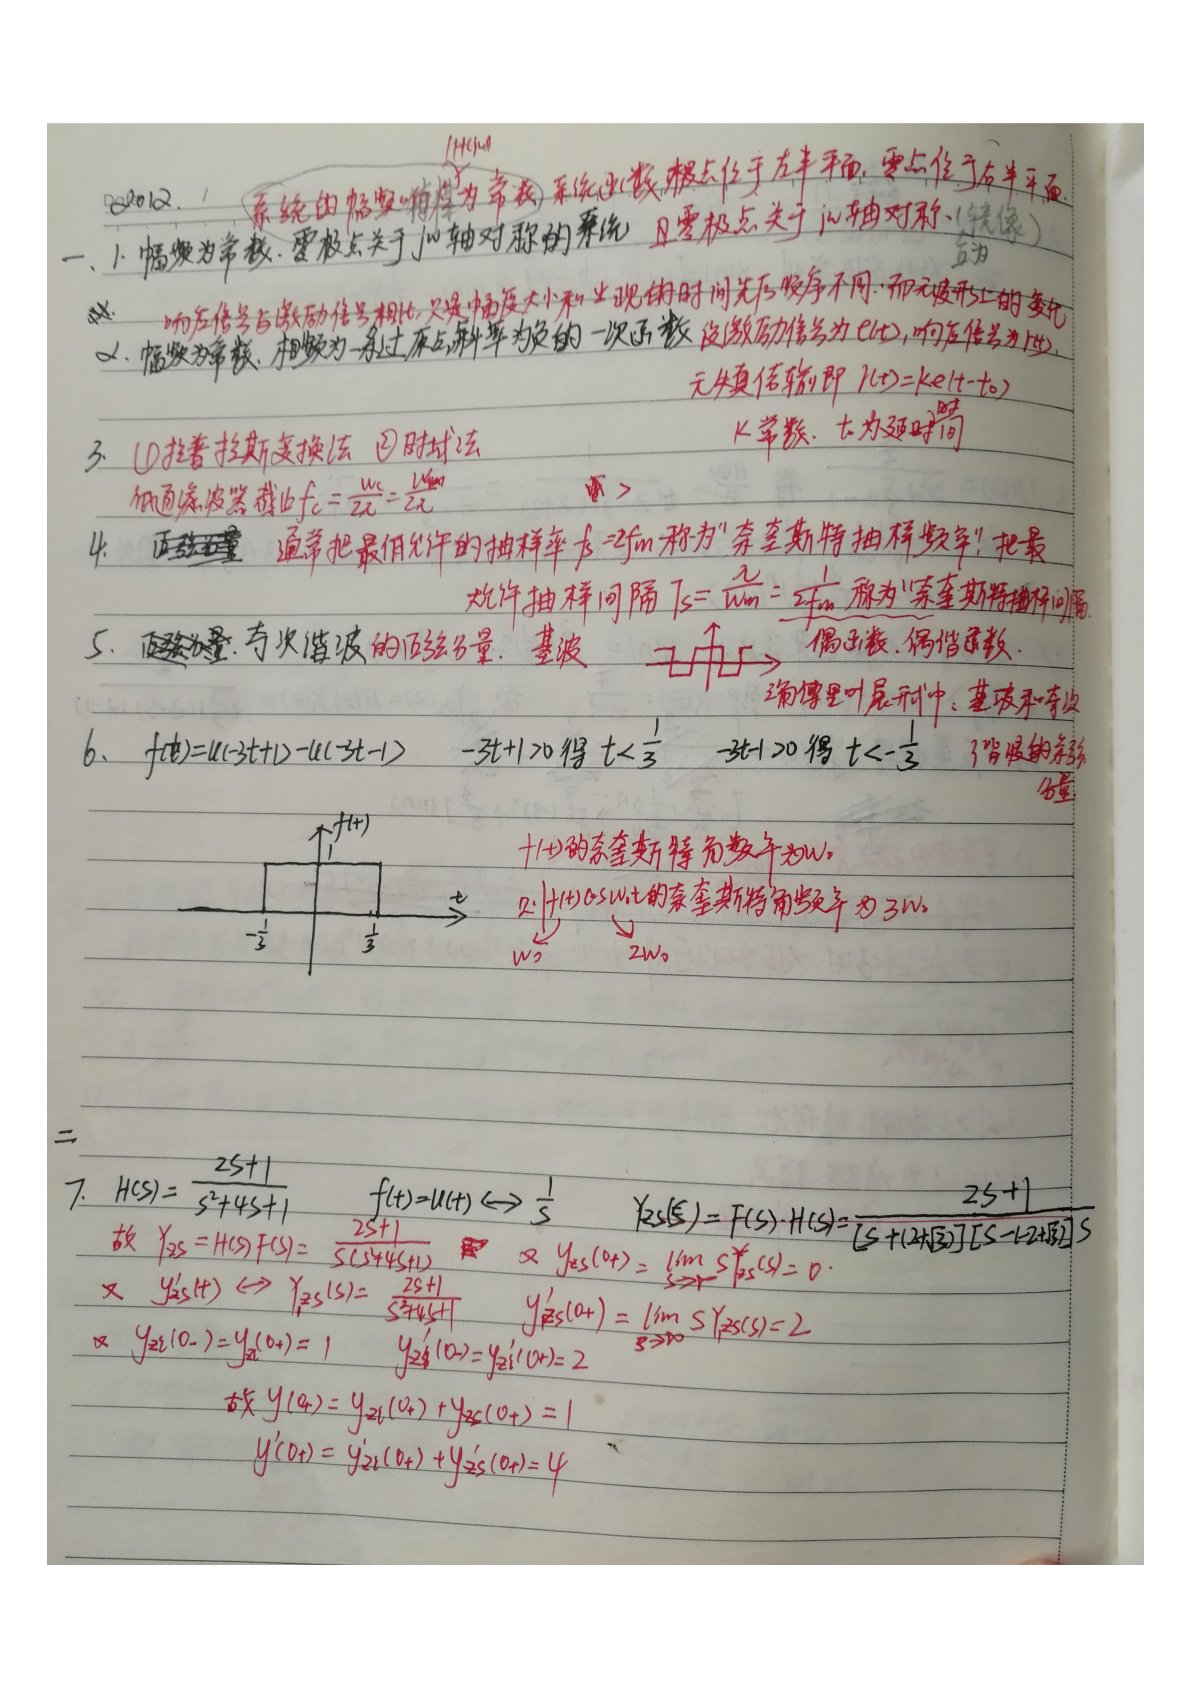 |H(jw)|
2012.
系统的幅频特性为常数, 系统函数极点位于左半平面, 零点位于右半平面.
一、1. 幅频为常数、零极点关于jw轴对称的系统 且零极点关于jw轴对称.(镜像)
响应信号与激励信号相比,只是幅度大小和出现的时间先后顺序不同.而无波形上的变化
2. 幅频为常数、相频为一条过原点斜率为负的一次函数 设激励信号为e(t),响应信号为r(t),
无失真传输即 r(t)=ke(t-t₀)
K常数. t₀为延时时间
3. ①拉普拉斯变换法 ②时域法
低通滤波器截止 fc = wc/2π = wm/2π
4. 通常把最低允许的抽样率 fs=2fm 称为"奈奎斯特抽样频率", 把最
大允许抽样间隔 Ts = π/wm = 1/2fm 称为"奈奎斯特抽样间隔.
5. 奇次谐波的正弦分量. 基波 偶函数.偶谐函数.
三角傅里叶展开式中: 基波和奇次
6. f(t)=u(-3t+1)-u(-3t-1) -3t+1>0得 t<1/3 -3t-1>0得 t<-1/3 谐波的余弦
分量
f(t)
1
t
-1/3
1/3
f(t)的奈奎斯特角频率为w₀
f(t)cosw₀t的奈奎斯特角频率为3w₀
w₀ 2w₀
二
7. H(s)= (2s+1)/(s²+4s+1) f(t)=u(t)↔1/s Yzs(s)=F(s)·H(s)= (2s+1)/([s+(2+√3)][s-(-2+√3)]s)
故 Yzs=H(s)F(s)= (2s+1)/(s(s²+4s+1)) 又 yzs(0+)= lim s→∞ sYzs(s)=0.
又 y'zs(t)↔Y₁zs(s)= (2s+1)/(s²+4s+1) y'zs(0+)= lim s→∞ sY₁zs(s)=2
又 yzi(0-)=yzi(0+)=1 y'zi(0-)=y'zi(0+)=2
故 y(0+)=yzi(0+)+yzs(0+)=1
y'(0+)=y'zi(0+)+y'zs(0+)=4